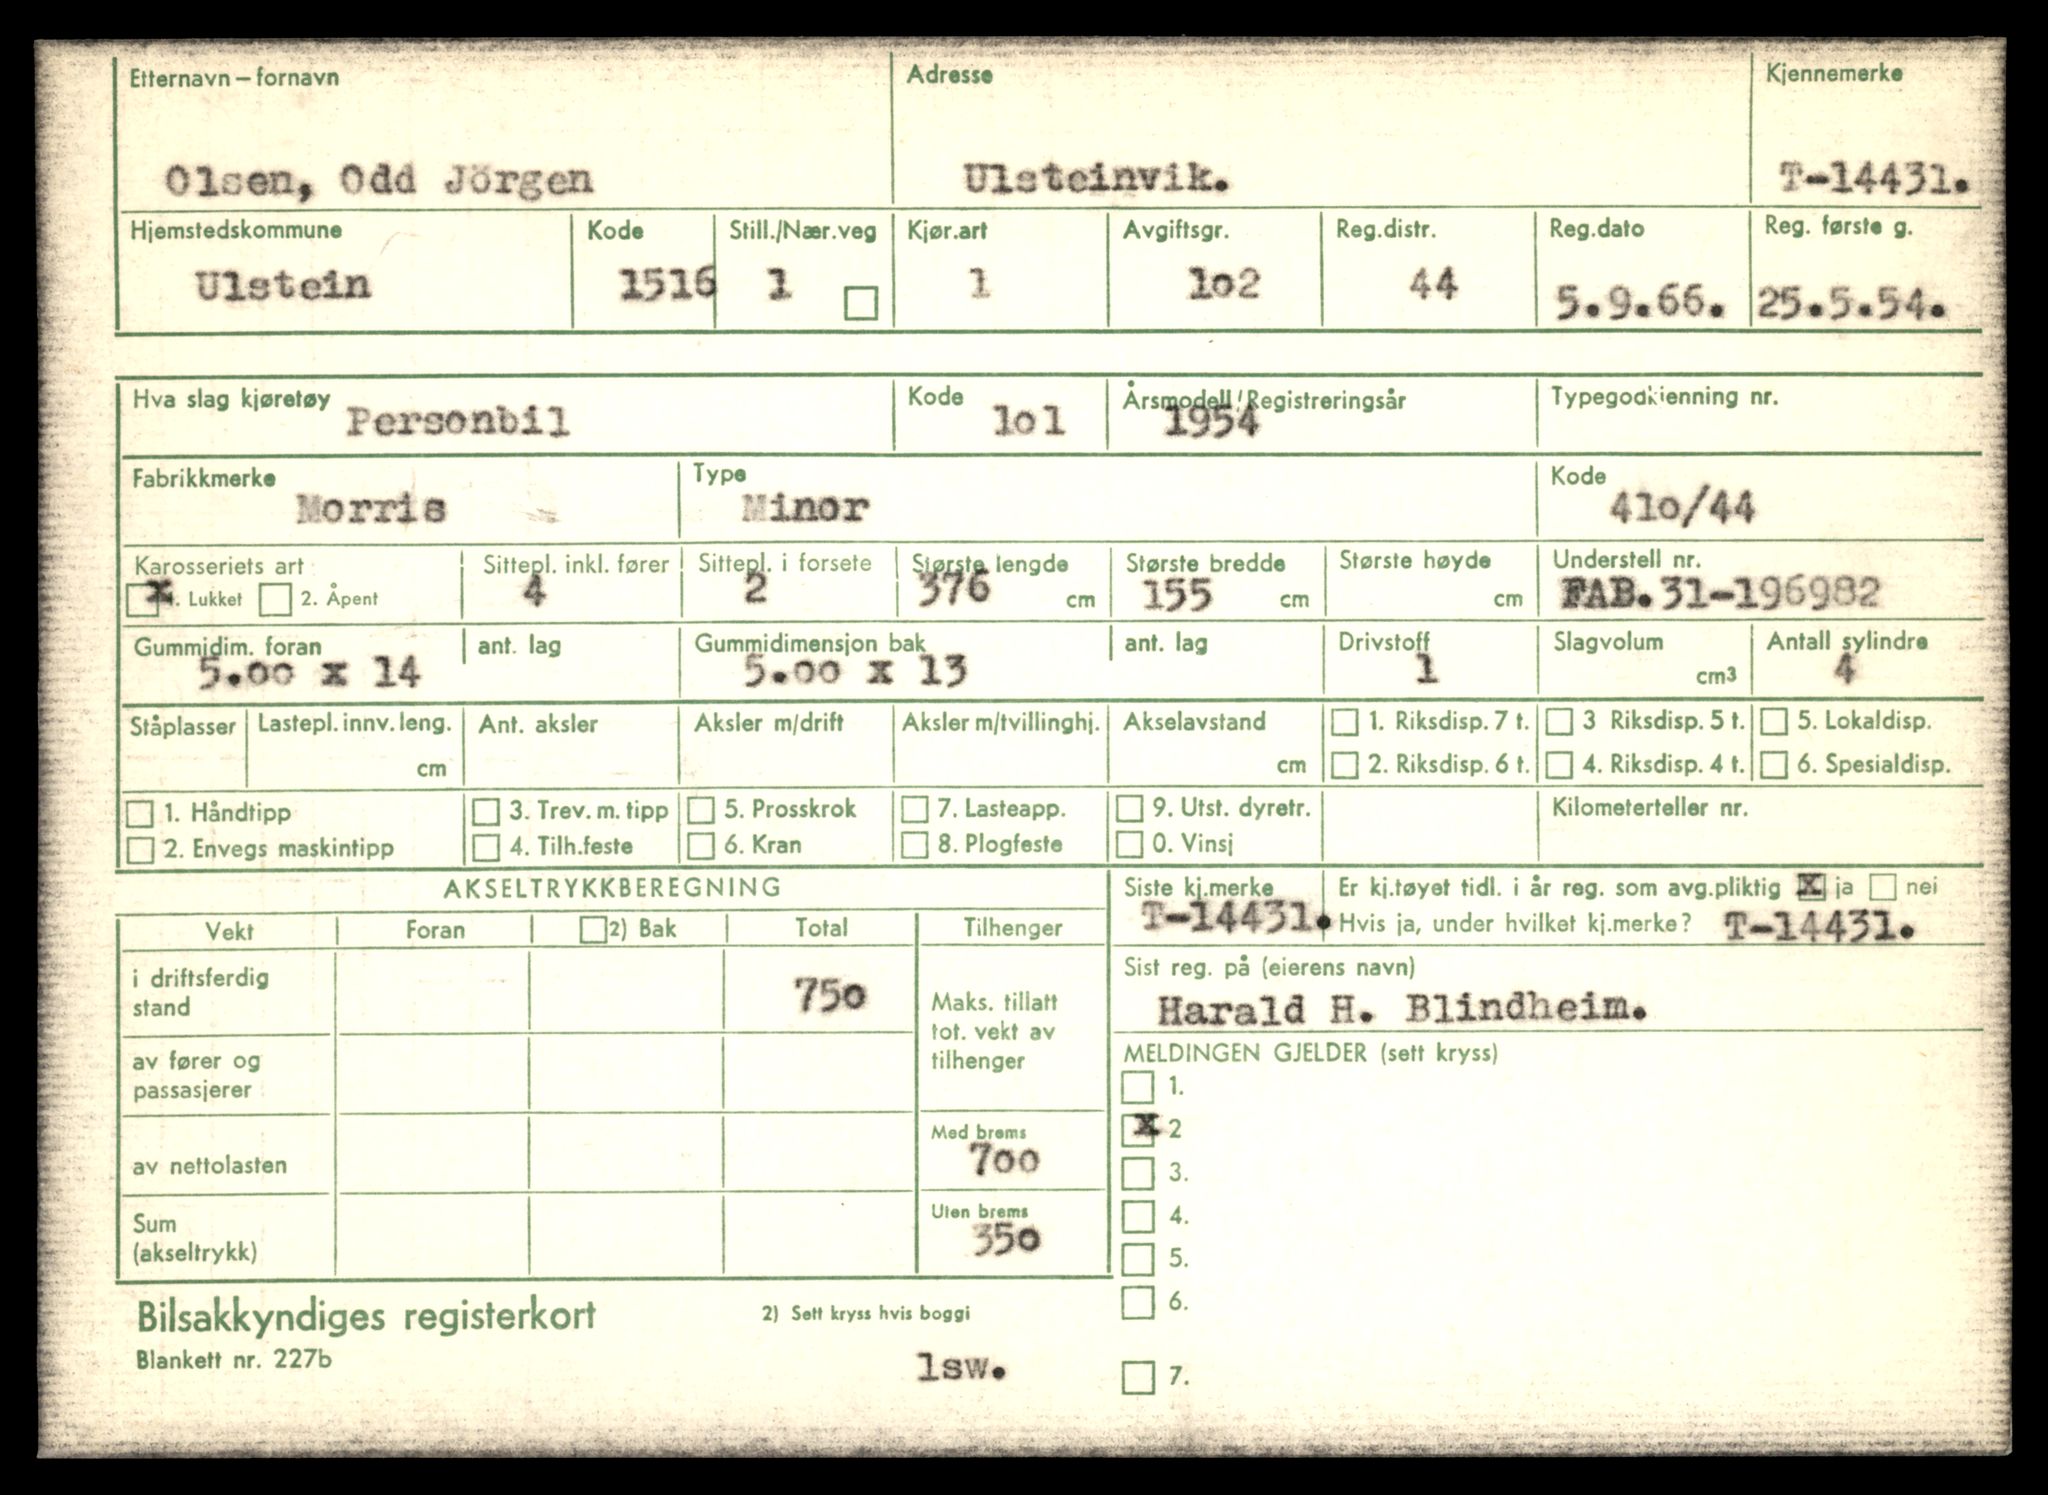 Etternavn – fornavn Adresse Kjennemerke
Olsen, Odd Jörgen Ulsteinvik. T-14431.
Hjemstedskommune Kode Still./Nær.veg Kjør.art Avgiftsgr. Reg.distr. Reg.dato Reg. første g.
Ulstein 1516 1 1 1o2 44 5.9.66. 25.5.54.
Hva slag kjøretøy Kode Årsmodell/Registreringsår Typegodkjenning nr.
Personbil 1o1 1954
Fabrikkmerke Type Kode
Morris Minor 41o/44
Karosseriets art Sittepl. inkl. fører Sittepl. i forsete Største lengde Største bredde Største høyde Understell nr.
x 1. Lukket 2. Åpent 4 2 376 cm 155 cm cm FAB.31-196982
Gummidim. foran ant. lag Gummidimensjon bak ant. lag Drivstoff Slagvolum Antall sylindre
5.oo x 14 5.oo x 13 1 cm3 4
Ståplasser Lastepl. innv. leng. Ant. aksler Aksler m/drift Aksler m/tvillinghj. Akselavstand 1. Riksdisp. 7 t. 3 Riksdisp. 5 t. 5. Lokaldisp.
cm cm 2. Riksdisp. 6 t. 4. Riksdisp. 4 t. 6. Spesialdisp.
1. Håndtipp 3. Trev. m. tipp 5. Prosskrok 7. Lasteapp. 9. Utst. dyretr. Kilometerteller nr.
2. Envegs maskintipp 4. Tilh.feste 6. Kran 8. Plogfeste 0. Vinsj
AKSELTRYKKBEREGNING Siste kj.merke Er kj.tøyet tidl. i år reg. som avg.pliktig x ja nei
T-14431. Hvis ja, under hvilket kj.merke? T-14431.
Vekt Foran 2) Bak Total Tilhenger
Sist reg. på (eierens navn)
Harald H. Blindheim.
i driftsferdig
stand 75o
Maks. tillatt
tot. vekt av
tilhenger
av fører og
passasjerer
MELDINGEN GJELDER (sett kryss)
1.
x 2
3.
4.
5.
6.
7.
Med brems
7oo
av nettolasten
Uten brems
35o
Sum
(akseltrykk)
Bilsakkyndiges registerkort 2) Sett kryss hvis boggi
Blankett nr. 227b
1sw.